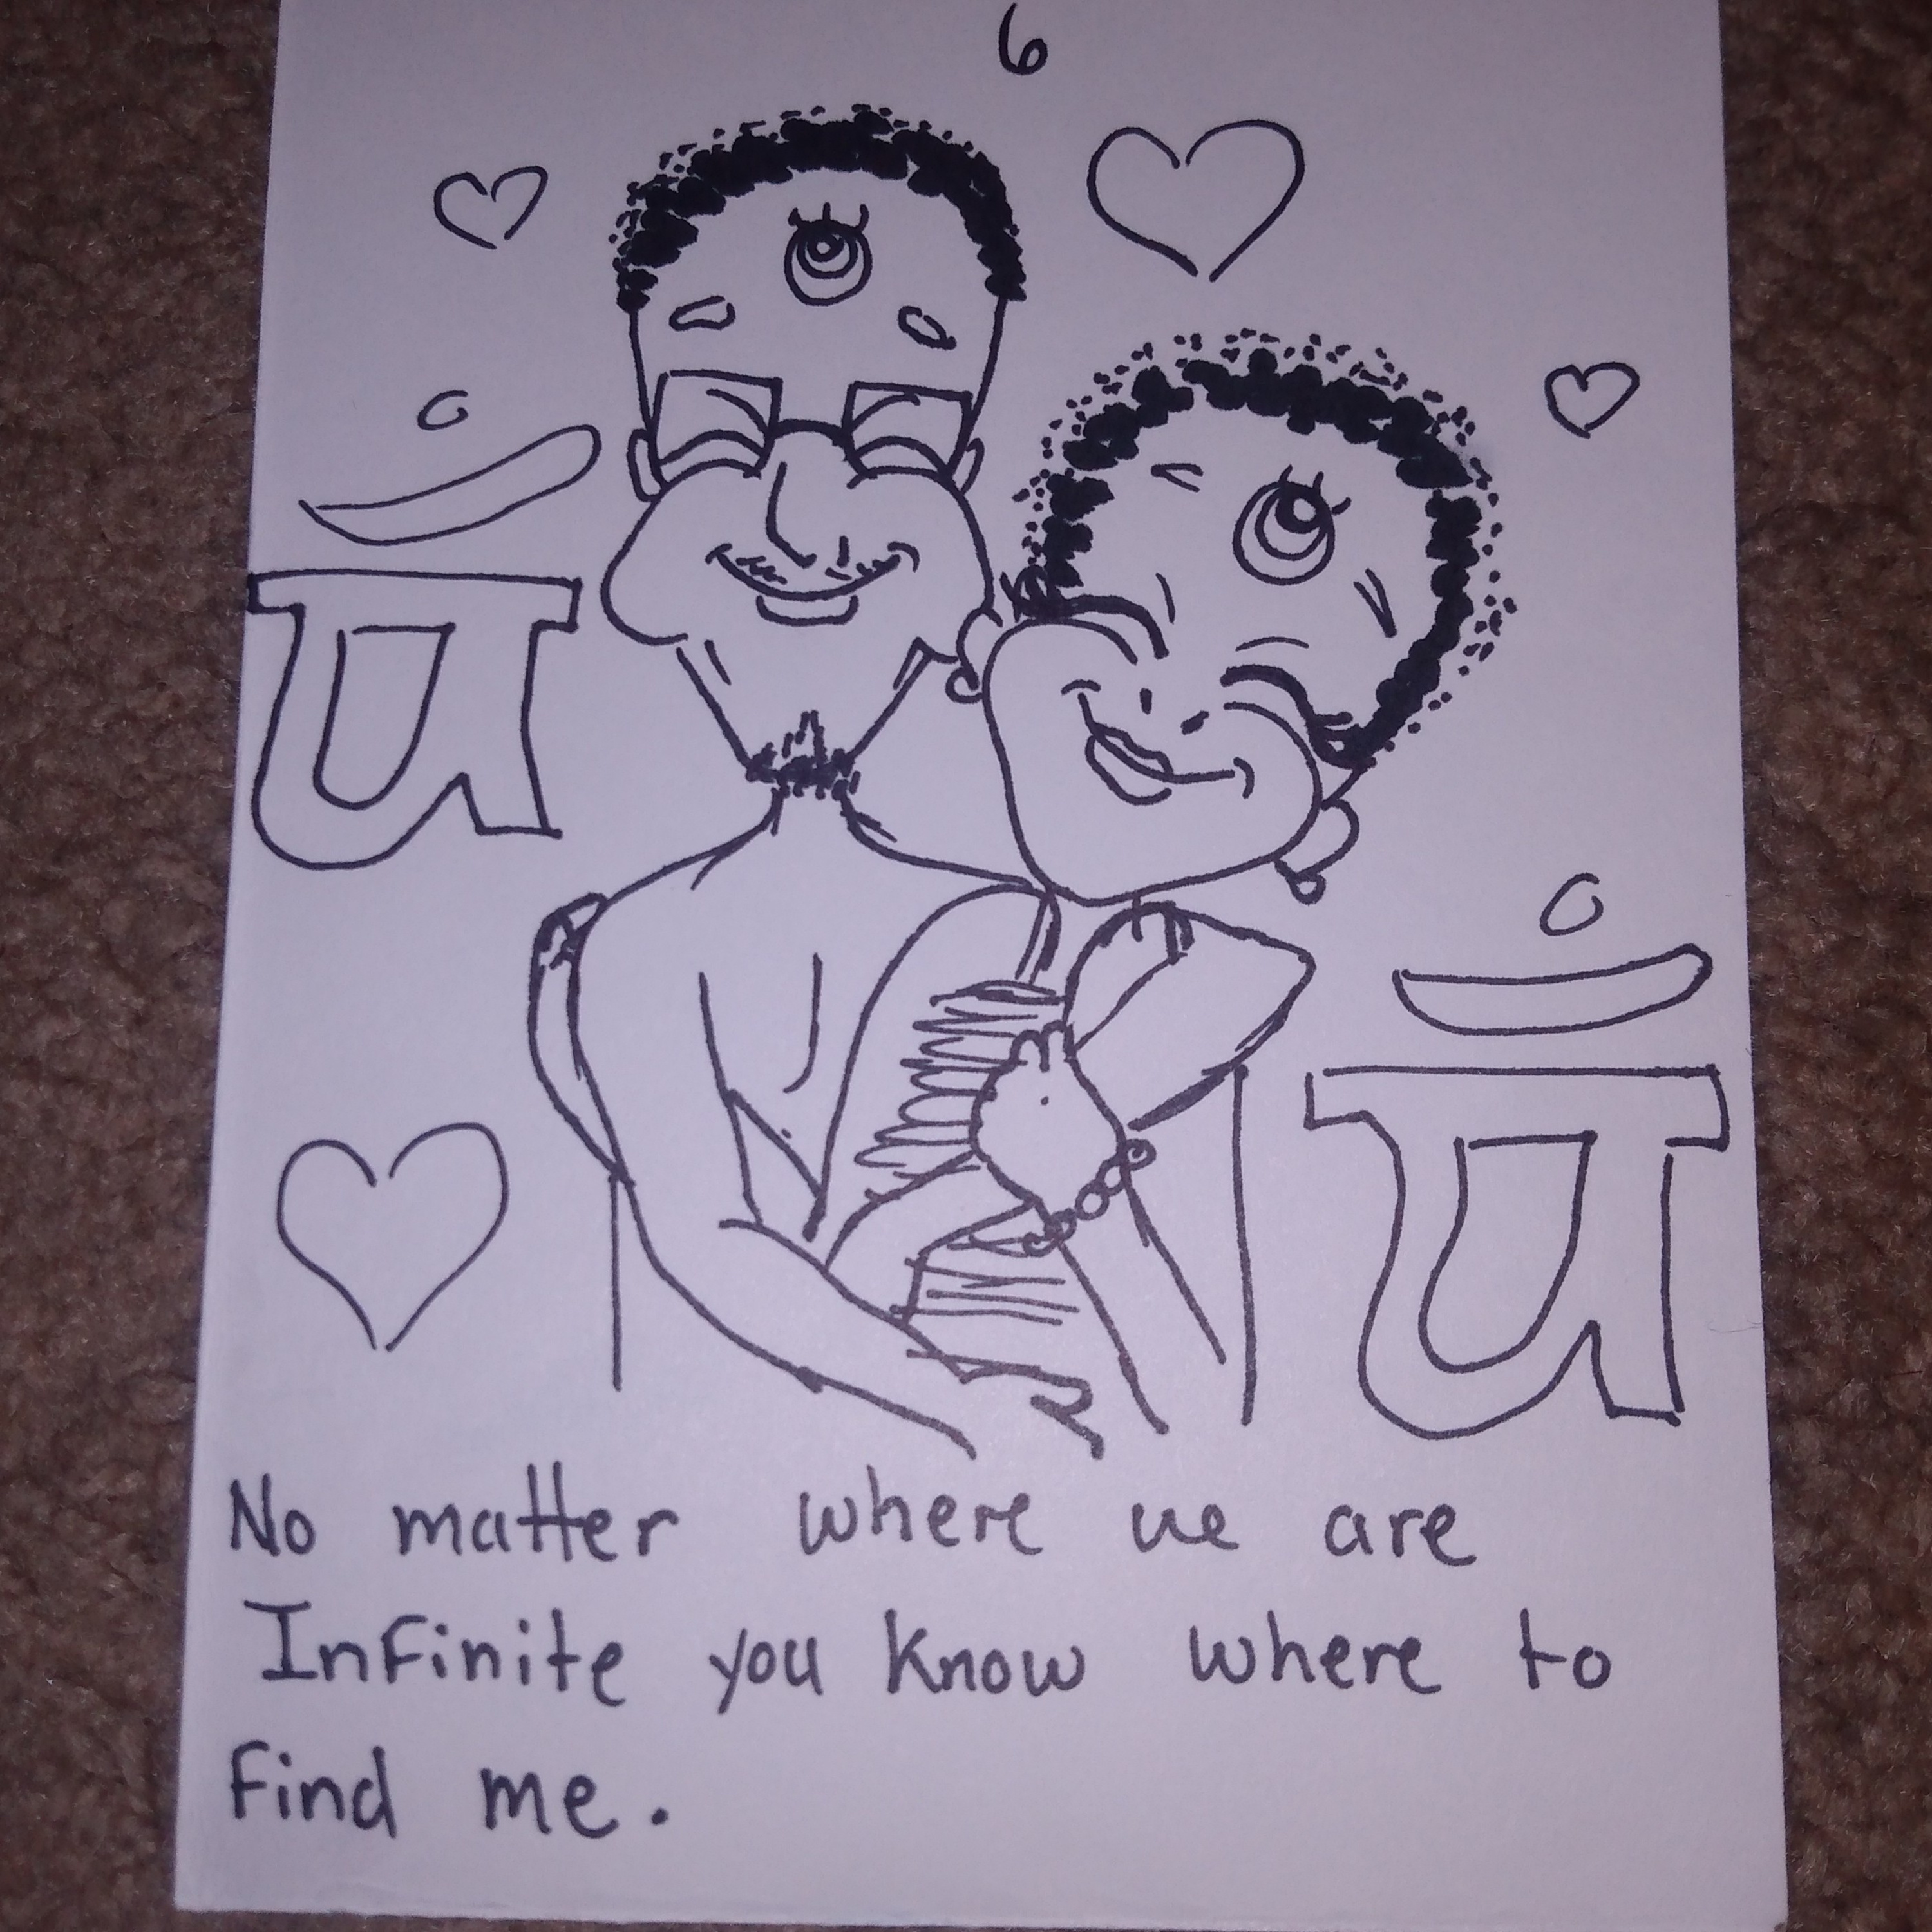 6
पँ
पँ
No matter where we are
Infinite you know where to
find me.